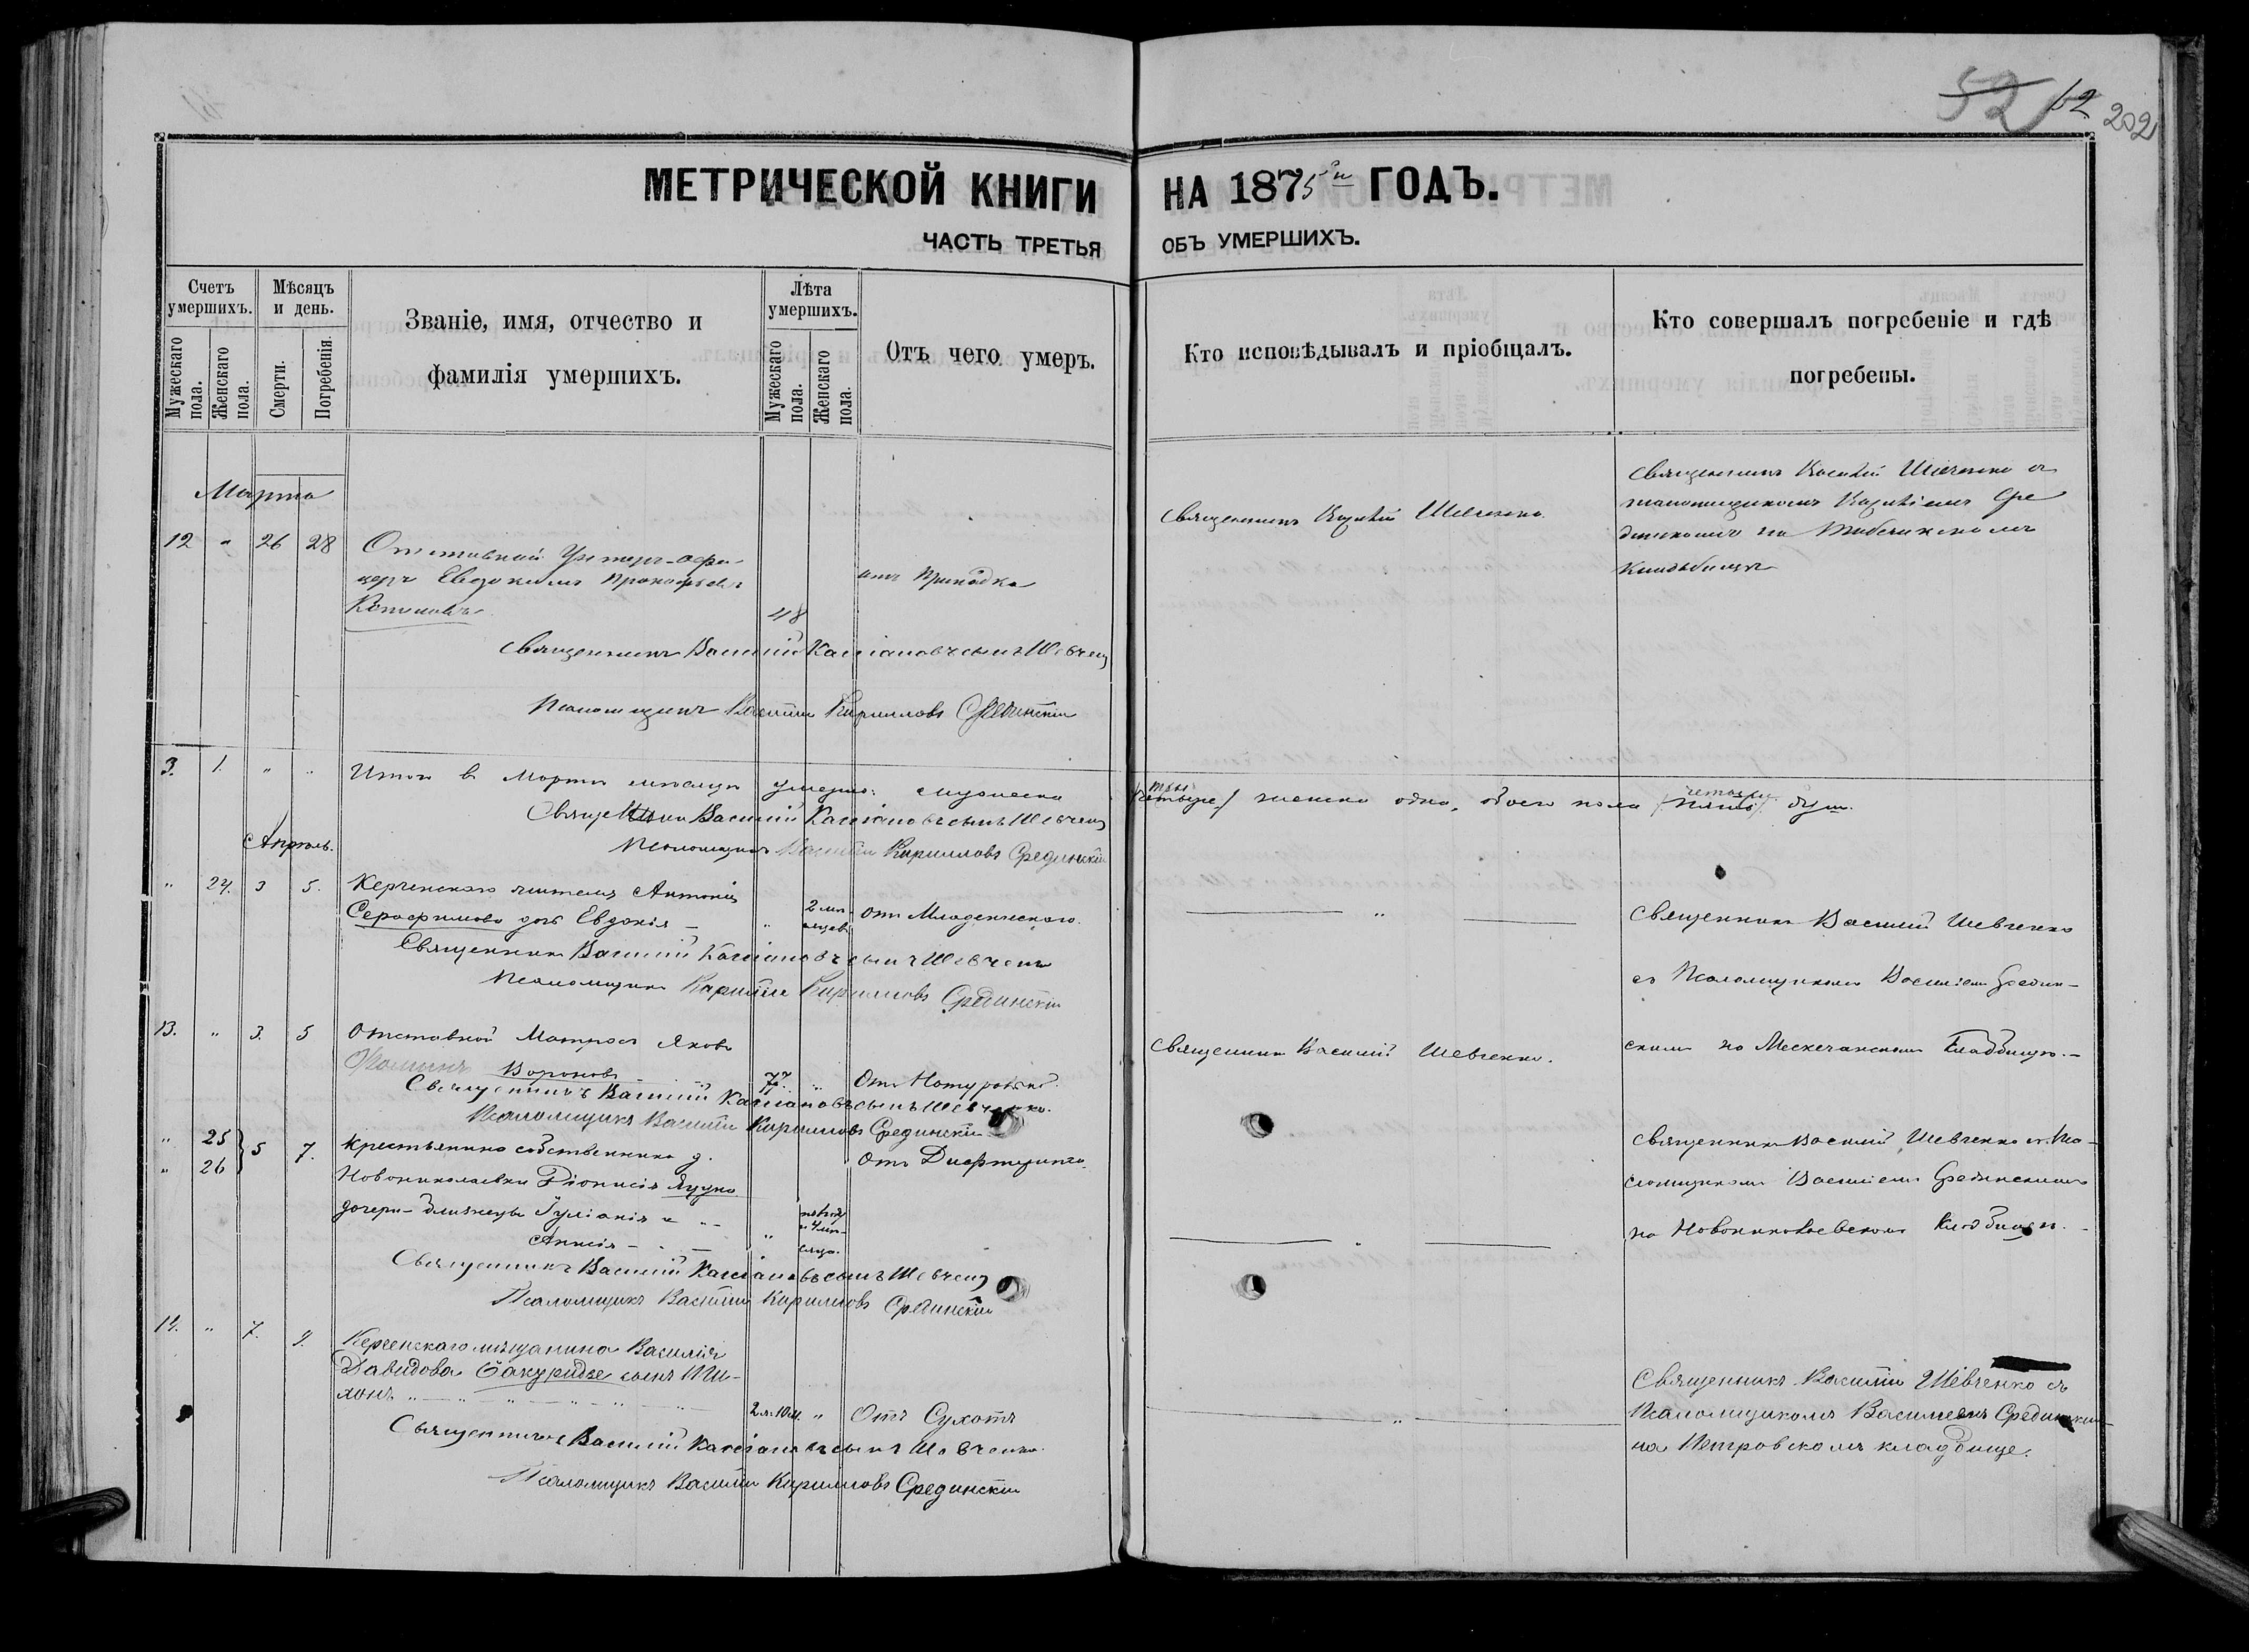 52 62 202
МЕТРИЧЕСКОЙ КНИГИ НА 1875й ГОДЪ.
ЧАСТЬ ТРЕТЬЯ ОБЪ УМЕРШИХЪ.
Счетъ умершихъ.
Мужескаго пола.
Женскаго пола.
Мѣсяцъ и день.
Смерти.
Погребенія.
Званіе, имя, отчество и
фамилія умершихъ.
Лѣта умершихъ.
Мужескаго пола.
Женскаго пола.
Отъ чего умеръ.
Кто исповѣдывалъ и пріобщалъ.
Кто совершалъ погребеніе и гдѣ
погребены.
Марта
12 " 26 28 Отставной Унтеръ-офи-
церъ Евдокимъ Прокофьевъ
48
отъ Припадка
Священникъ Василій Шевченко
Священникъ Василій Шевченко съ
псаломщикомъ Василіемъ Сре
динскимъ на
Кладбищѣ
Священникъ Василій Кассіановъ сынъ Шевченко
Псаломщикъ Василій Кирилловъ Срединскій
3. 1. " " Итого въ Мартѣ мѣсяцѣ умерло: мужеска три /четыре/ женска одна, обоего пола четыре /пять/ душ.
Священникъ Василій Кассіановъ сынъ Шевченко
Псаломщикъ Василій Кирилловъ Срединскій
Апрѣль.
" 24. 3 5. Керченскаго жителя Антонія
Серафимова дочь Евдокія
" 2 мѣ-
сяцевъ
отъ Младенческаго
"
Священникъ Василій Шевченко
съ Псаломщикомъ Василіемъ Средин-
Священникъ Василій Кассіановъ сынъ Шевченко
Псаломщикъ Василій Кирилловъ Срединскій
13. " 3. 5 Отставной Матросъ Яковъ
Фоминъ Вороновъ
77 "
Отъ Натуральной
Священникъ Василій Шевченко.
скимъ на кладбищѣ.
Священникъ Василій Кассіановъ сынъ Шевченко.
Псаломщикъ Василій Кирилловъ Срединскій
" 25
" 26 } 5 7. Крестьянина собственника д.
Новониколаевки Діонисія Яцуна
дочери-близнецы Іуліанія и
Анисія
"
Отъ Дифтерита
"
Священникъ Василій Шевченко съ Пса-
ломщикомъ Василіемъ Срединскимъ
на Новониколаевскомъ Кладбищѣ.
Священникъ Василій Кассіановъ сынъ Шевченко
Псаломщикъ Василій Кирилловъ Срединскій
14. " 7. 9. Керченскаго мѣщанина Василія
Давидова Сакуридзе сынъ Ти-
хонъ
2 л. 10 м. "
Отъ Сухотъ
"
Священникъ Василій Шевченко съ
Псаломщикомъ Василіемъ Срединскимъ
на Петровскомъ кладбище.
Священникъ Василій Кассіановъ сынъ Шевченко.
Псаломщикъ Василій Кирилловъ Срединскій